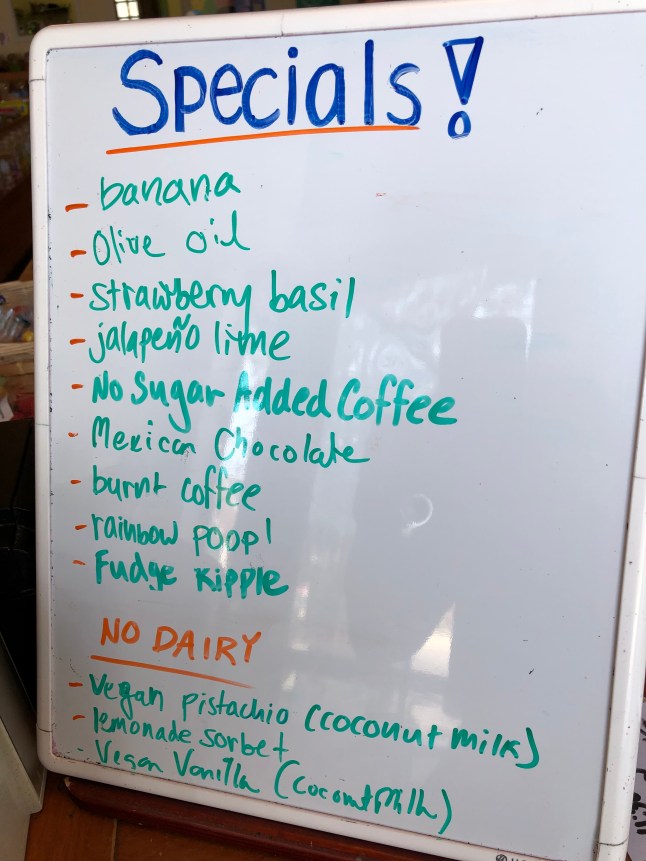 Specials!
- banana
- Olive oil
- strawberry basil
- jalapeño lime
- No Sugar Added Coffee
- Mexican Chocolate
- burnt coffee
- rainbow poop!
- Fudge Ripple
NO DAIRY
- Vegan pistachio (coconut milk)
- lemonade sorbet
- Vegan Vanilla (coconut Milk)